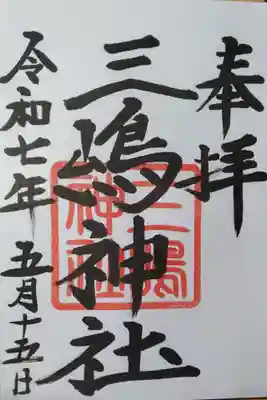 奉拝
三嶋神社
三嶋神社
令和七年 五月十五日